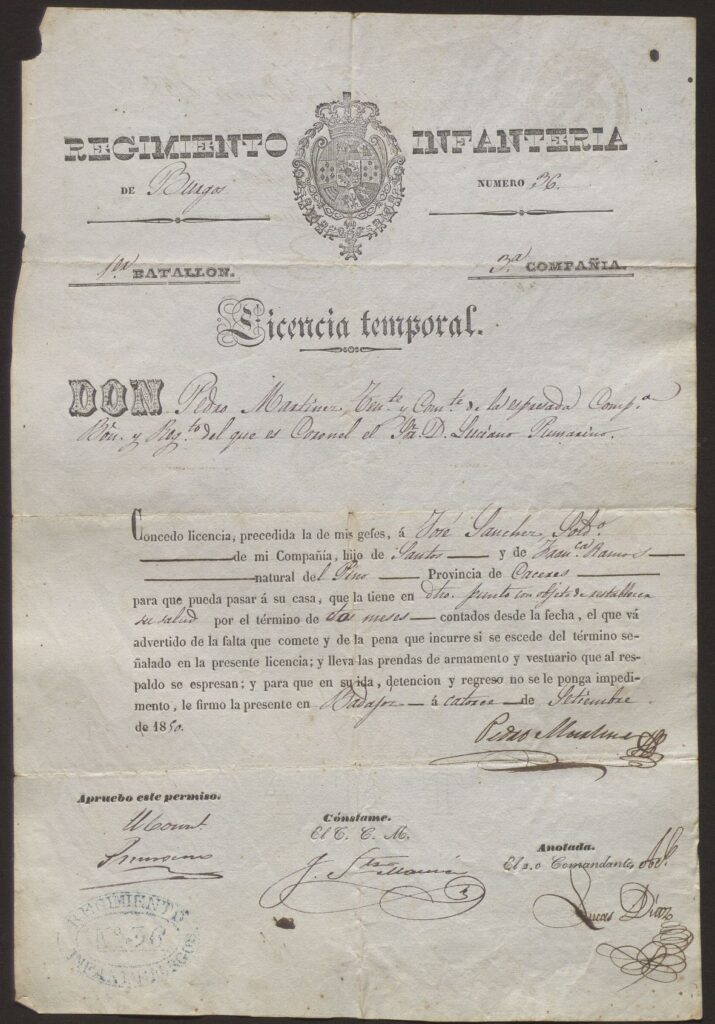 REGIMIENTO INFANTERIA
DE Burgos NUMERO 36.
1er BATALLON. 3.a COMPAÑIA.
Licencia temporal.
DON Pedro Martinez Ten.te y Com.te de la espresada Comp.a
Bón. y Reg.to del que es Coronel el Sr. D. Luciano
Concedo licencia, precedida la de mis gefes, á José Sanchez Sold.o
de mi Compañia, hijo de Santos y de Fran.ca Ramos
natural del Pino Provincia de Caceres
para que pueda pasar á su casa, que la tiene en dho. punto con objeto de restablecer
su salud por el término de dos meses contados desde la fecha, el que vá
advertido de la falta que comete y de la pena que incurre si se escede del término se-
ñalado en la presente licencia; y lleva las prendas de armamento y vestuario que al res-
paldo se espresan; y para que en su ida, detencion y regreso no se le ponga impedi-
mento, le firmo la presente en Badajoz á catorce de Setiembre
de 1850.
Pedro Martinez
Apruebo este permiso.
Cónstame.
El T. C. M.
Anotada.
El 2.o Comandante
Lucas Diaz
REGIMIENTO
No. 36
INFAN. BURGOS.